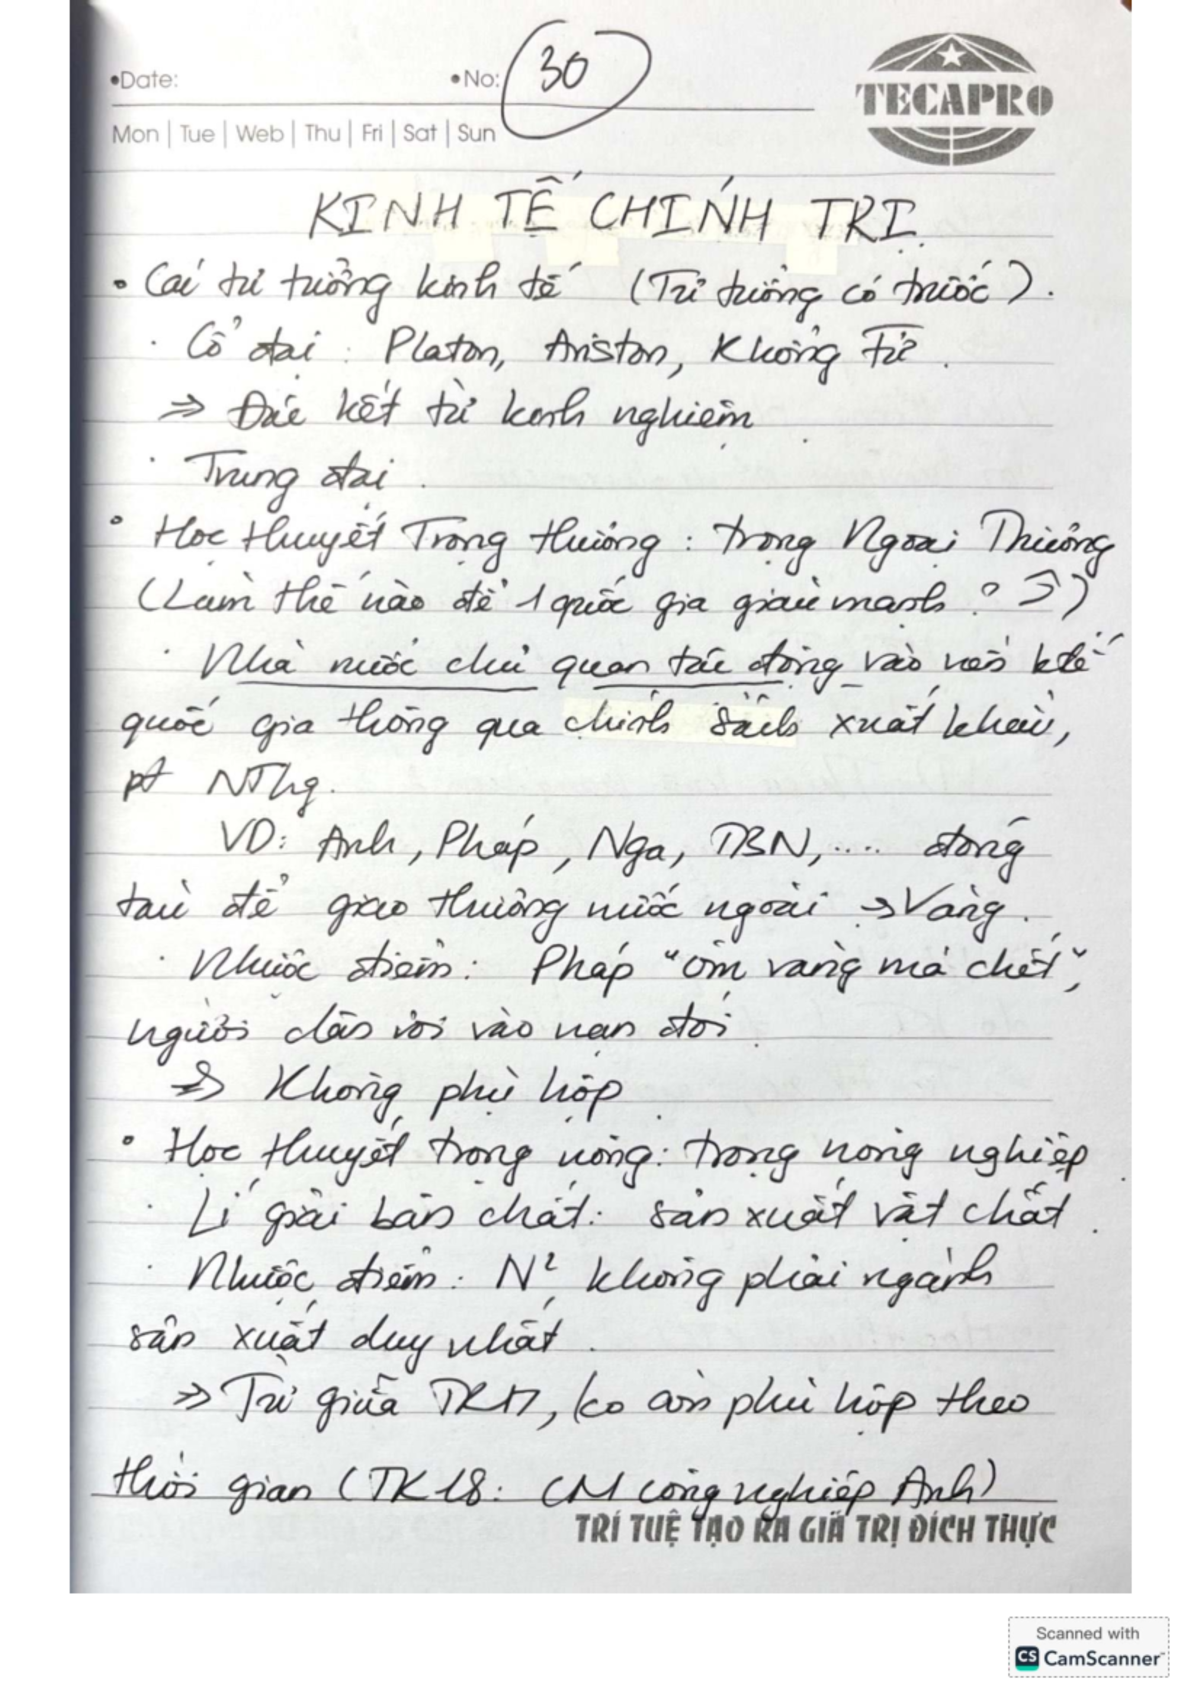 •Date: •No: 30
TECAPRO
Mon | Tue | Web | Thu | Fri | Sat | Sun
KINH TẾ CHÍNH TRỊ
• Các tư tưởng kinh tế (Tư tưởng có trước).
· Cổ đại: Platon, Ariston, Khổng Tử.
=> Đúc kết từ kinh nghiệm.
· Trung đại.
• Học thuyết Trọng thương: trọng Ngoại Thương
(Làm thế nào để 1 quốc gia giàu mạnh?
· Nhà nước chủ quan tác động vào nền ktế
quốc gia thông qua chính sách xuất khẩu,
pt NThg.
VD: Anh, Pháp, Nga, TBN,.... đóng
tàu để giao thương nước ngoài → Vàng.
· Nhược điểm: Pháp "ôm vàng mà chết",
người dân rơi vào nạn đói.
=> Không phù hợp.
• Học thuyết trọng nông: trọng nông nghiệp.
· Lí giải bản chất: sản xuất vật chất.
· Nhược điểm: N² không phải ngành
sản xuất duy nhất.
=> Từ giữa TK17, ko còn phù hợp theo
thời gian (TK18: CM công nghiệp Anh)
TRÍ TUỆ TẠO RA GIÁ TRỊ ĐÍCH THỰC
Scanned with
CS CamScanner